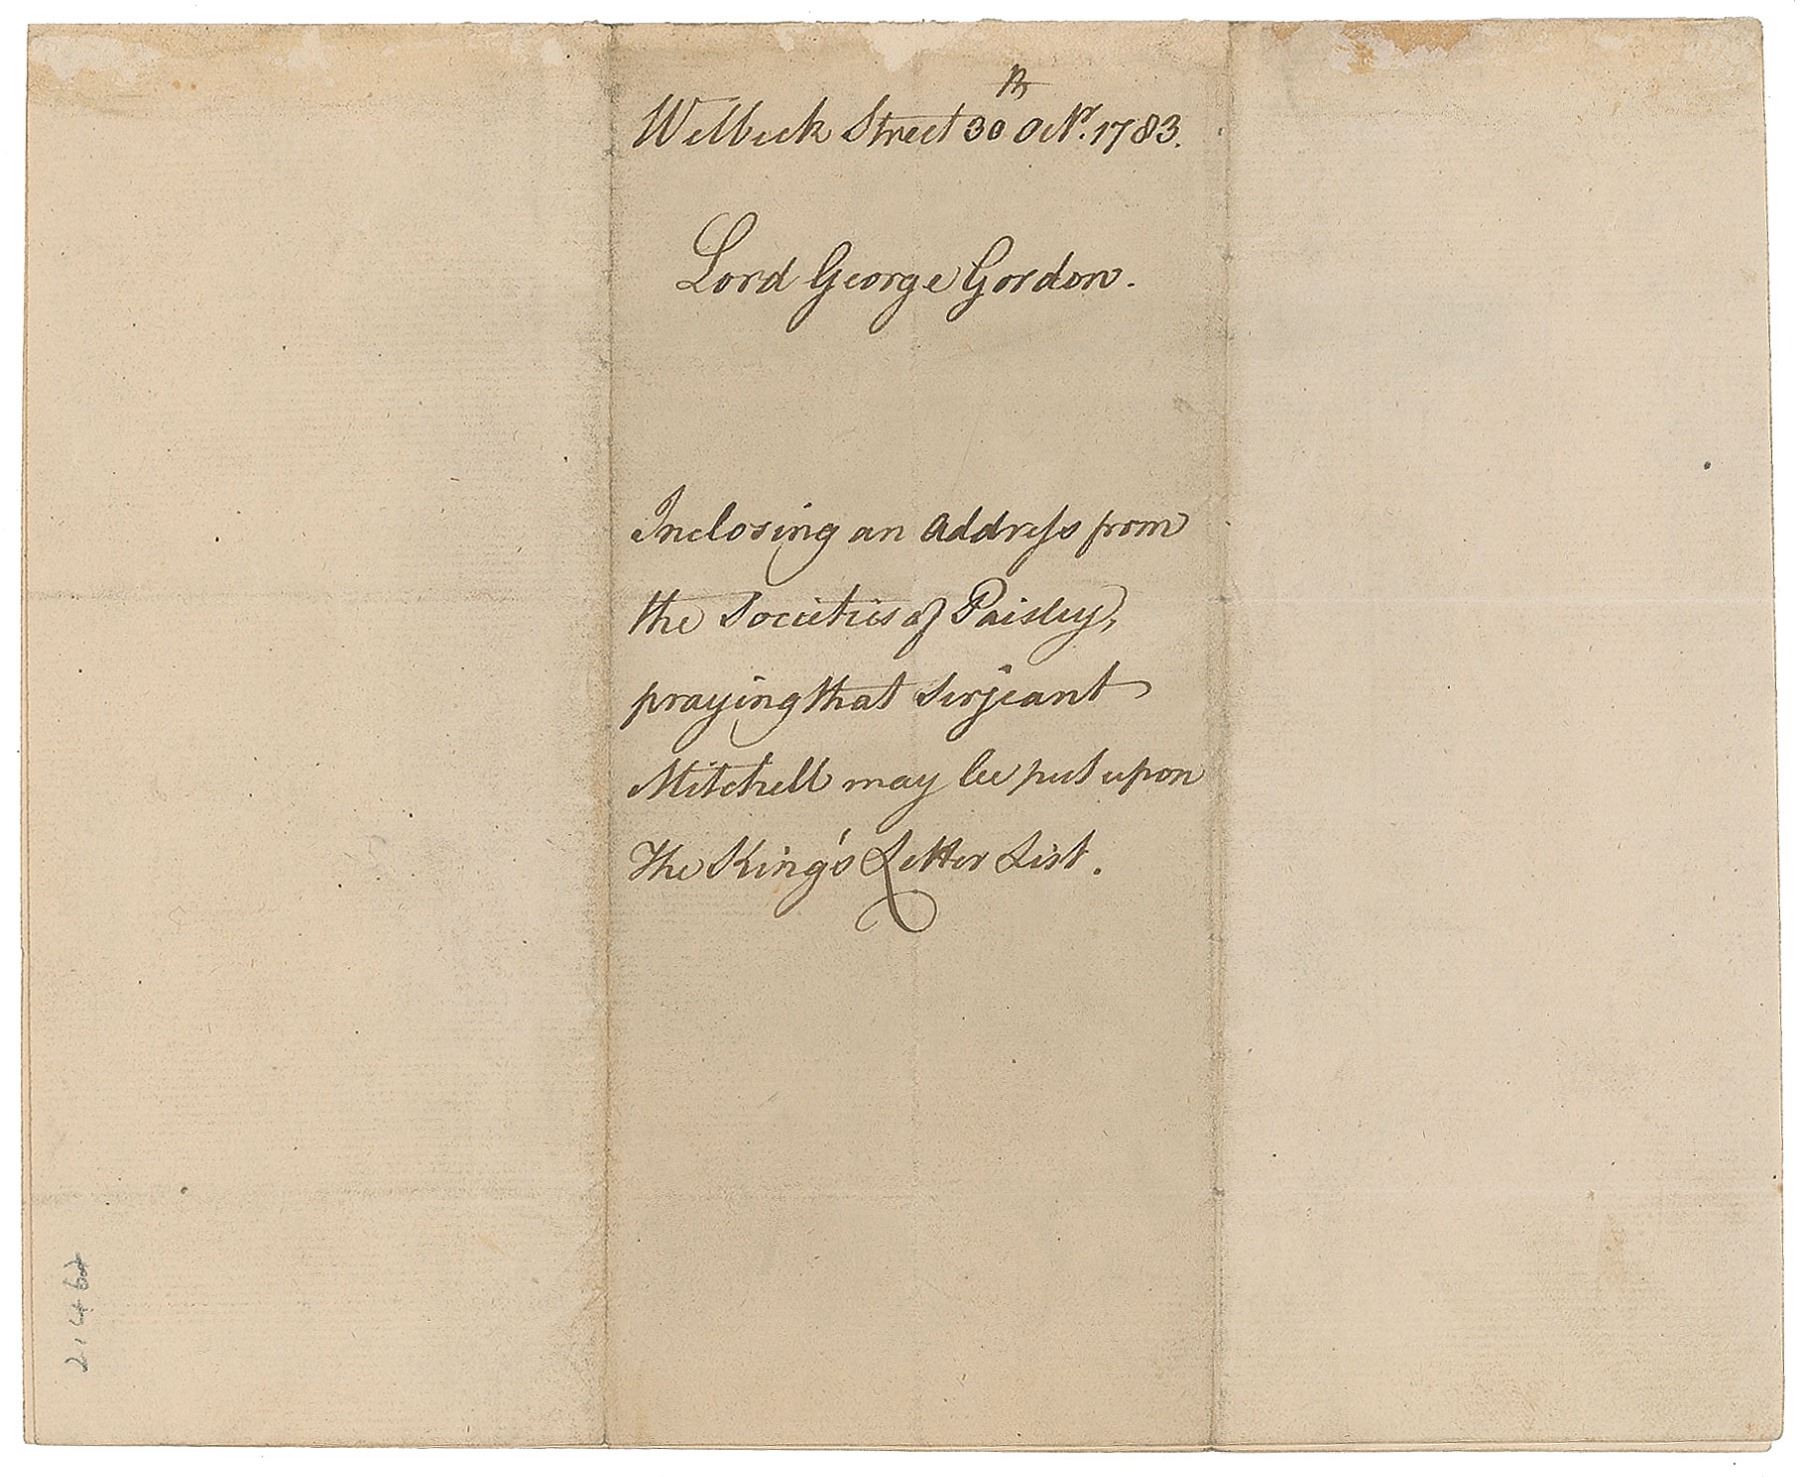 R
Welbeck Street 30 Octr. 1783.
Lord George Gordon.
Inclosing an Address from
the Societies of Paisley,
praying that Serjeant
Mitchell may be put upon
The King's Letter List.